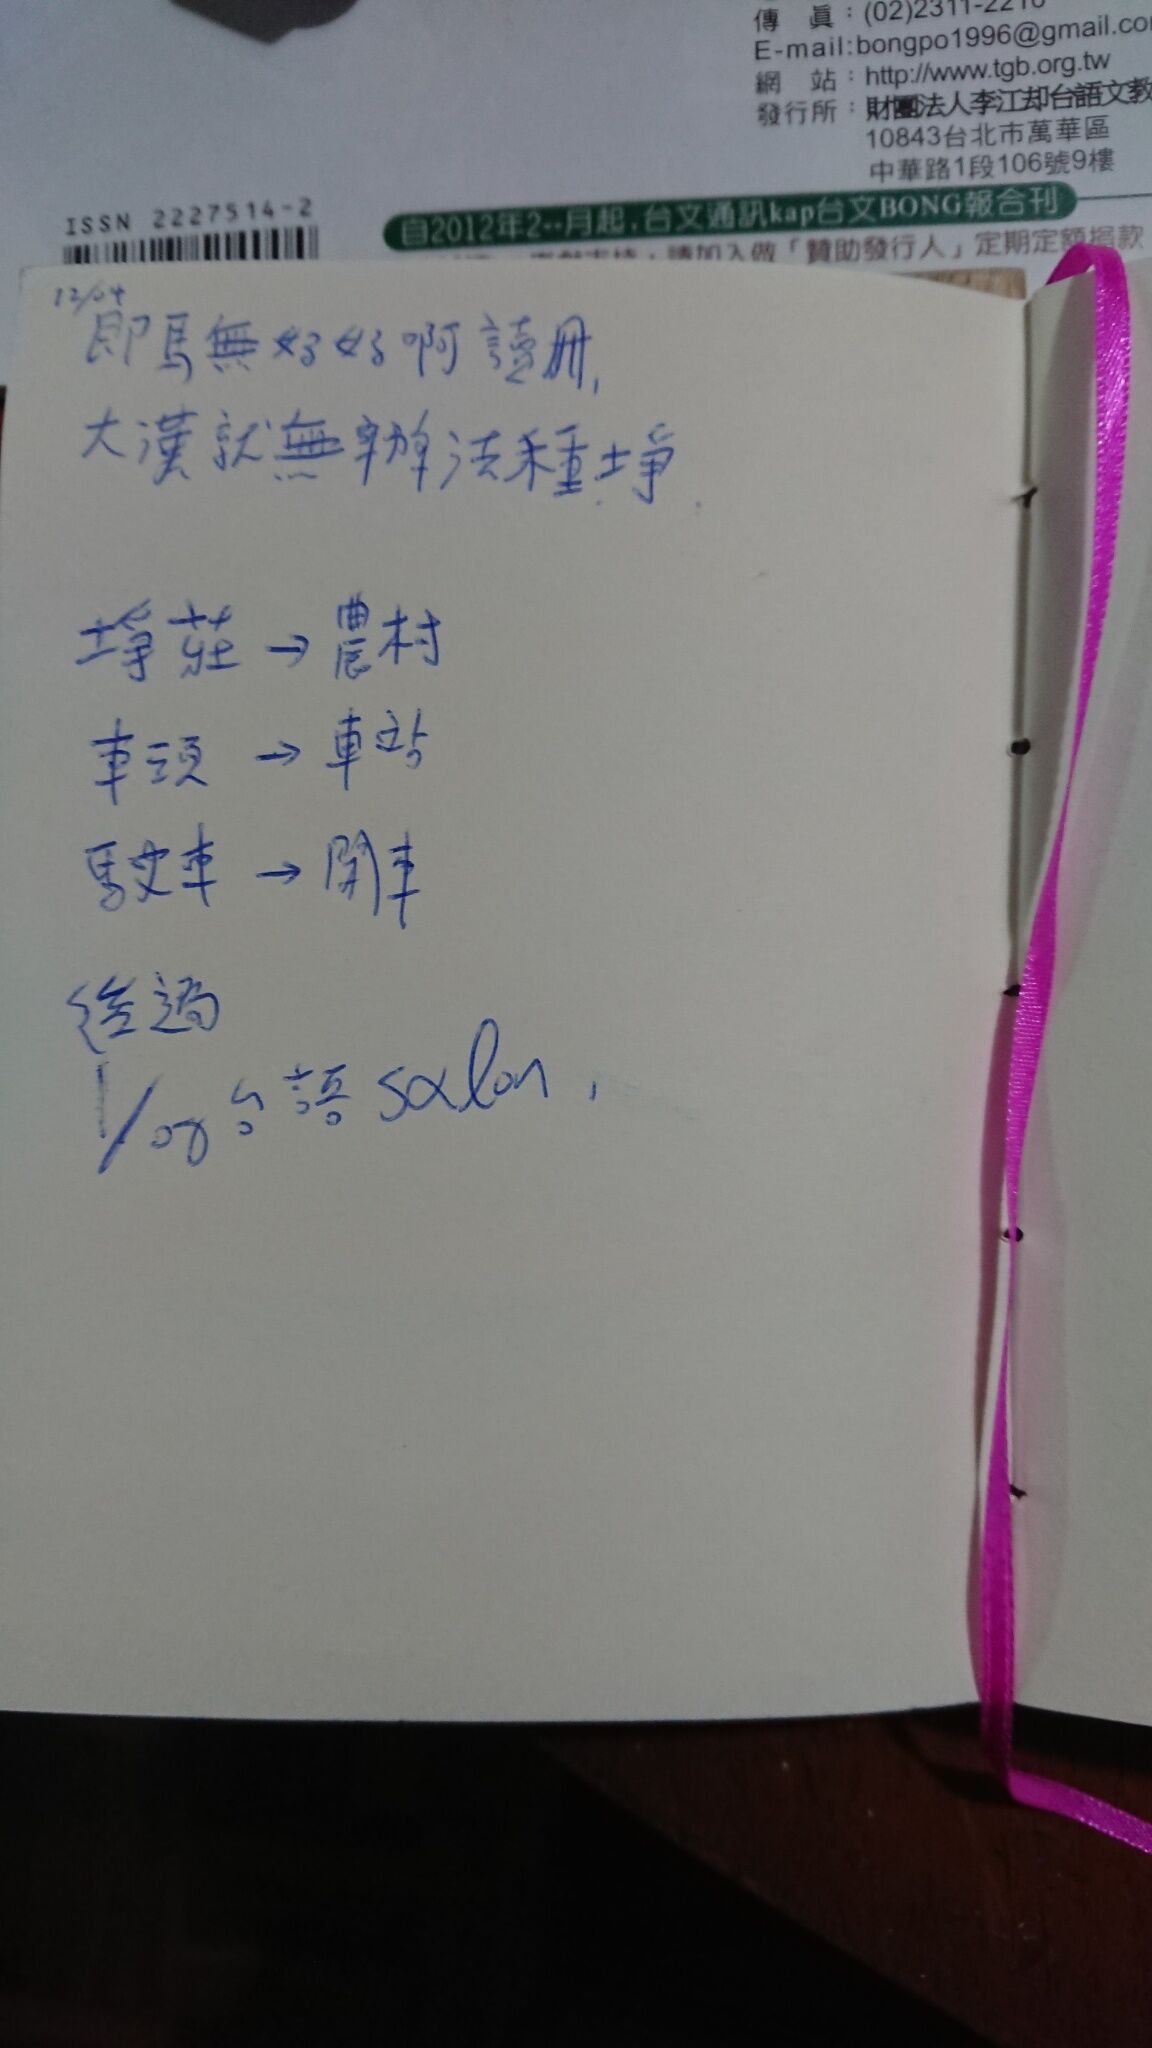 傳 真：(02)2311-2210
E-mail:bongpo1996@gmail.co
網 站：http://www.tgb.org.tw
發行所：財團法人李江却台語文教
10843台北市萬華區
中華路1段106號9樓
ISSN 2227514-2
自2012年2··月起,台文通訊kap台文BONG報合刊
請加入做「贊助發行人」定期定額捐款
12/04
即馬無好好啊讀冊,
大漢就無辦法種埩.
埩莊→農村
車頭→車站
駛車→開車
經過
台語salon,